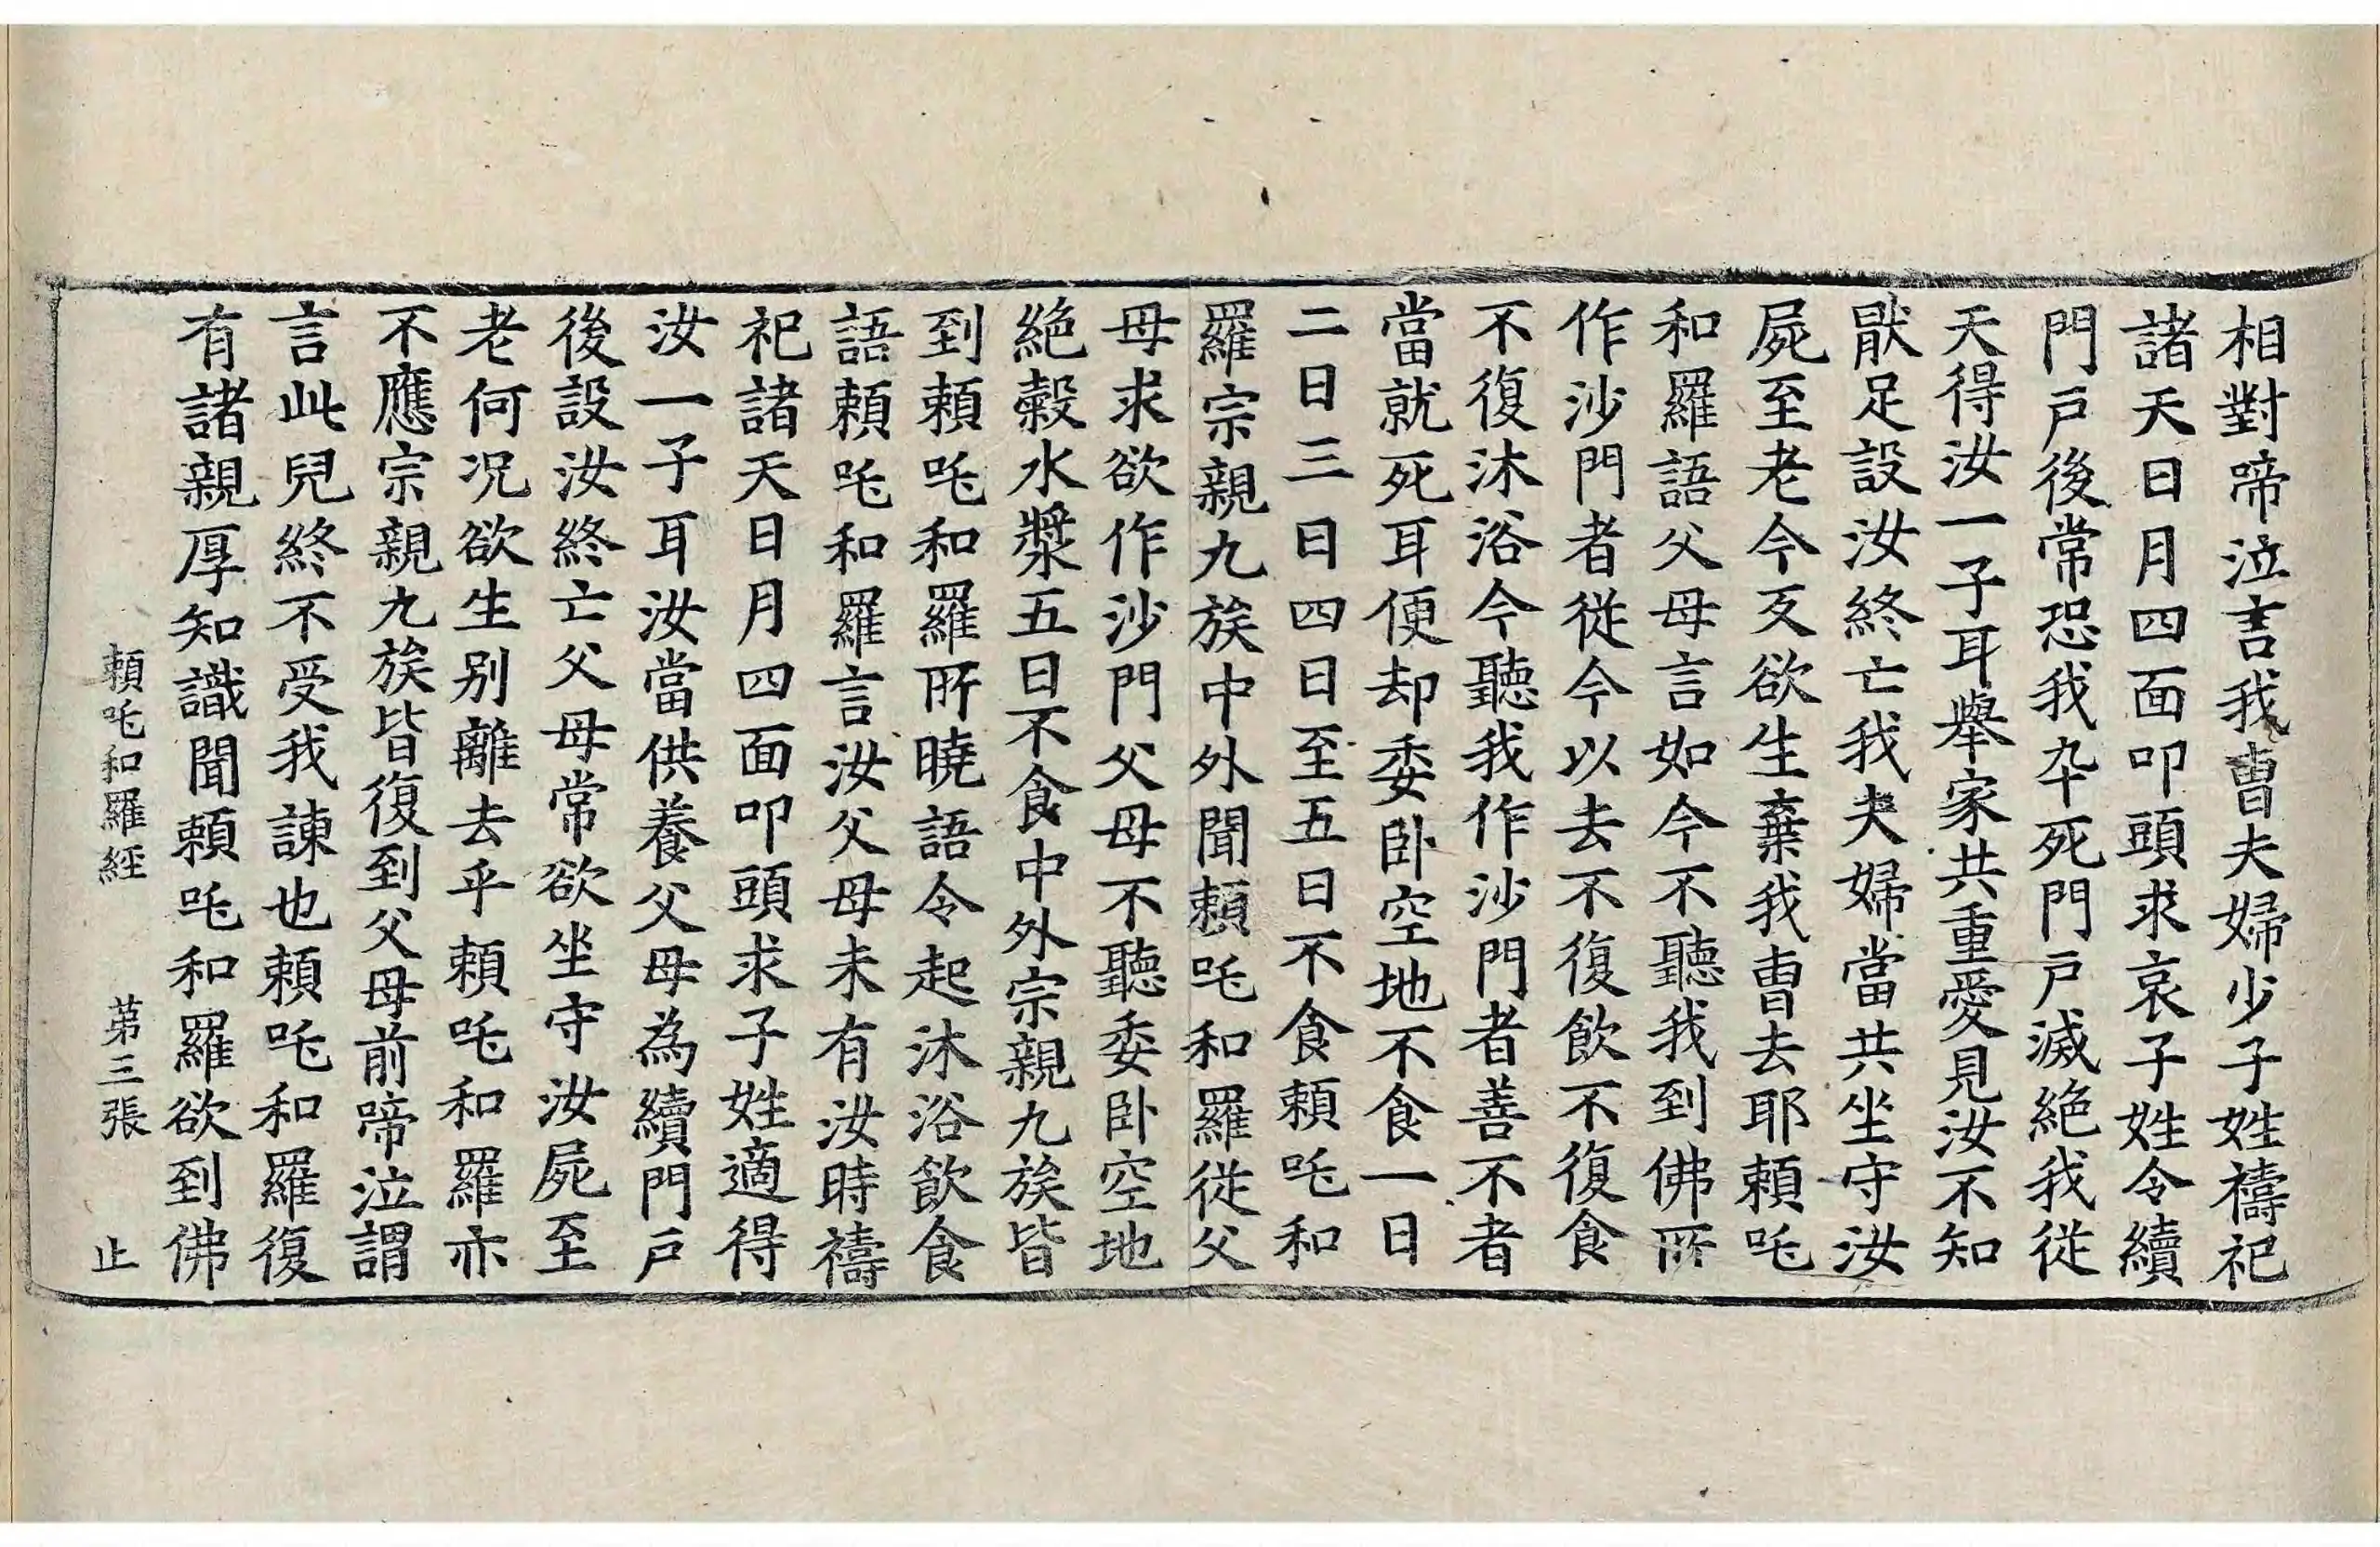 相對啼泣言我曺夫婦少子姓禱祀
諸天日月四面叩頭求哀子姓令續
門戶後常恐我卒死門戶滅絕我從
天得汝一子耳舉家共重愛見汝不知
猒足設汝終亡我夫婦當共坐守汝
屍至老今反欲生棄我曺去耶頼吒
和羅語父母言如今不聽我到佛所
作沙門者從今以去不復飮不復食
不復沐浴今聽我作沙門者善不者
當就死耳便却委卧空地不食一日
二日三日四日至五日不食頼吒和
羅宗親九族中外聞頼吒和羅從父
母求欲作沙門父母不聽委卧空地
絕糓水漿五日不食中外宗親九族皆
到頼吒和羅所曉語令起沐浴飮食
語頼吒和羅言汝父母未有汝時禱
祀諸天日月四面叩頭求子姓適得
汝一子耳汝當供養父母為續門戶
後設汝終亡父母常欲坐守汝屍至
老何况欲生别離去乎頼吒和羅亦
不應宗親九族皆復到父母前啼泣謂
言此兒終不受我諫也頼吒和羅復
有諸親厚知識聞頼吒和羅欲到佛
頼吒和羅經 苐三張 止